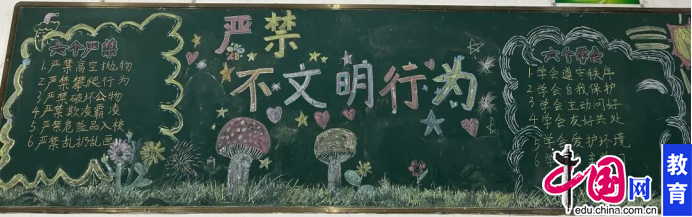 六个严禁
1.严禁高空抛物
2.严禁攀爬行为
3.严禁破坏公物
4.严禁欺凌霸凌
5.严禁危险品入校
6.严禁乱扔乱画
严禁
不文明行为
六个学会
1.学会遵守秩序
2.学会自我保护
3.学会主动问好
4.学会友好共处
5.学会爱护环境
6
中国网
edu.china.com.cn
教育